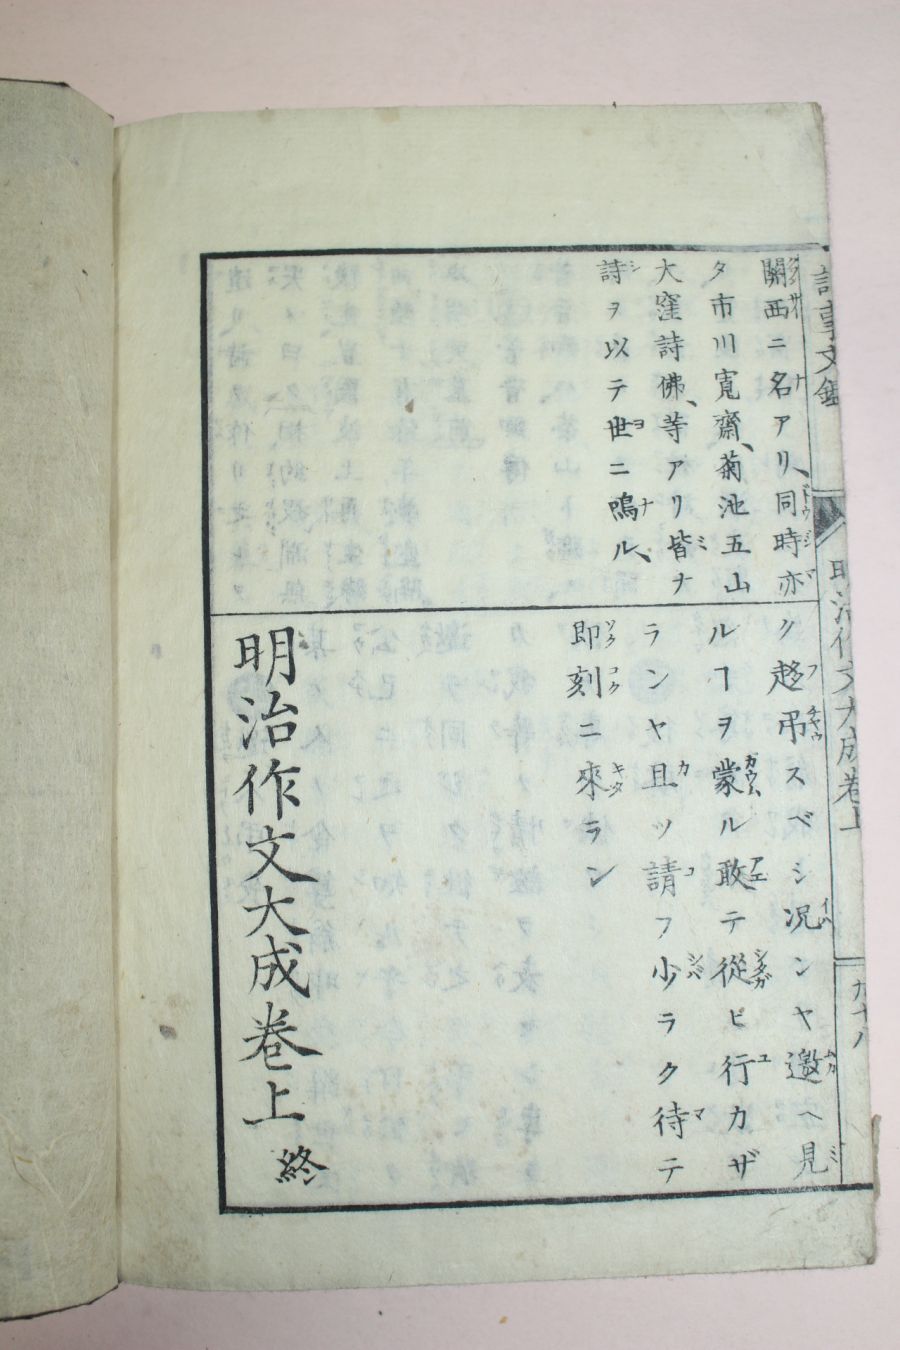 關西ニ名アリ、同時亦
タ市川寬齋、菊池五山
大窪詩佛、等アリ皆ナ
詩ヲ以テ世ニ鳴ル、
ク趍弔スベシ况ンヤ邀ヘ見
ルヿヲ蒙ル敢テ從ヒ行カザ
ランヤ且ツ請フ少ラク待テ
即刻ニ來ラン
明治作文大成卷上終
文鑑
明治作文大成卷上
九十八